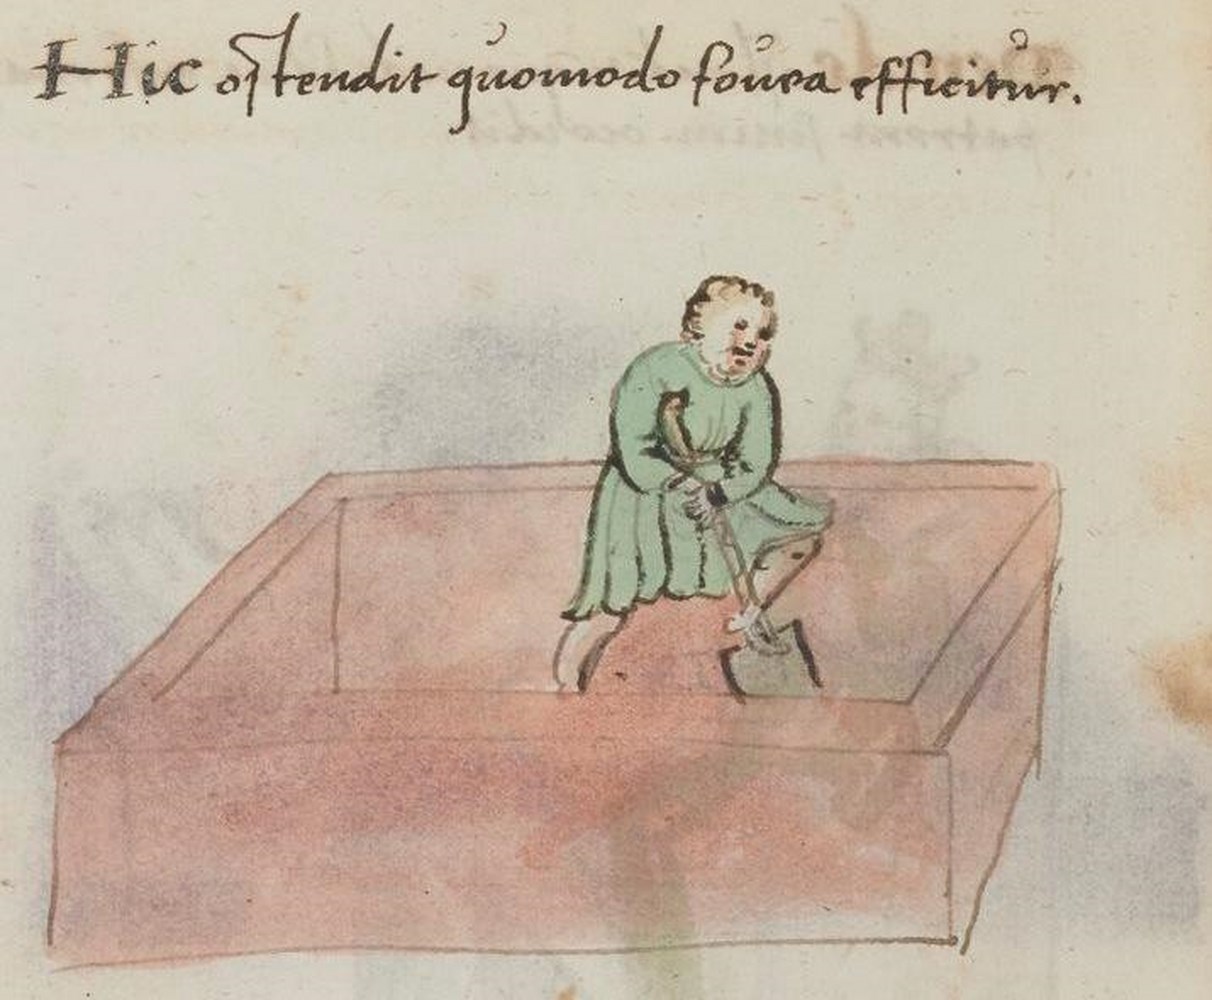 Hic ostendit quomodo fouea efficitur.